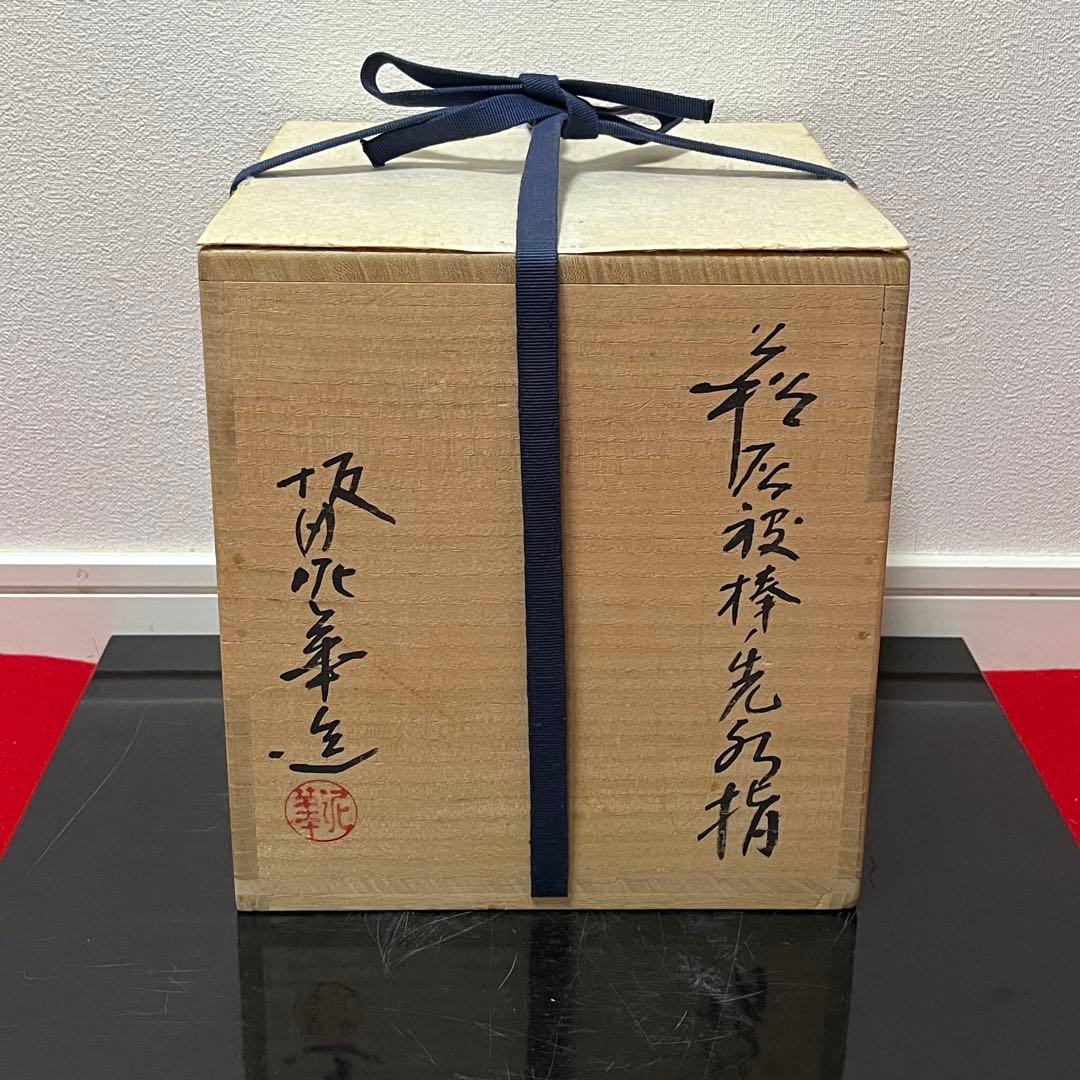 萩灰被棒ノ先水指
坂田泥華造
泥華